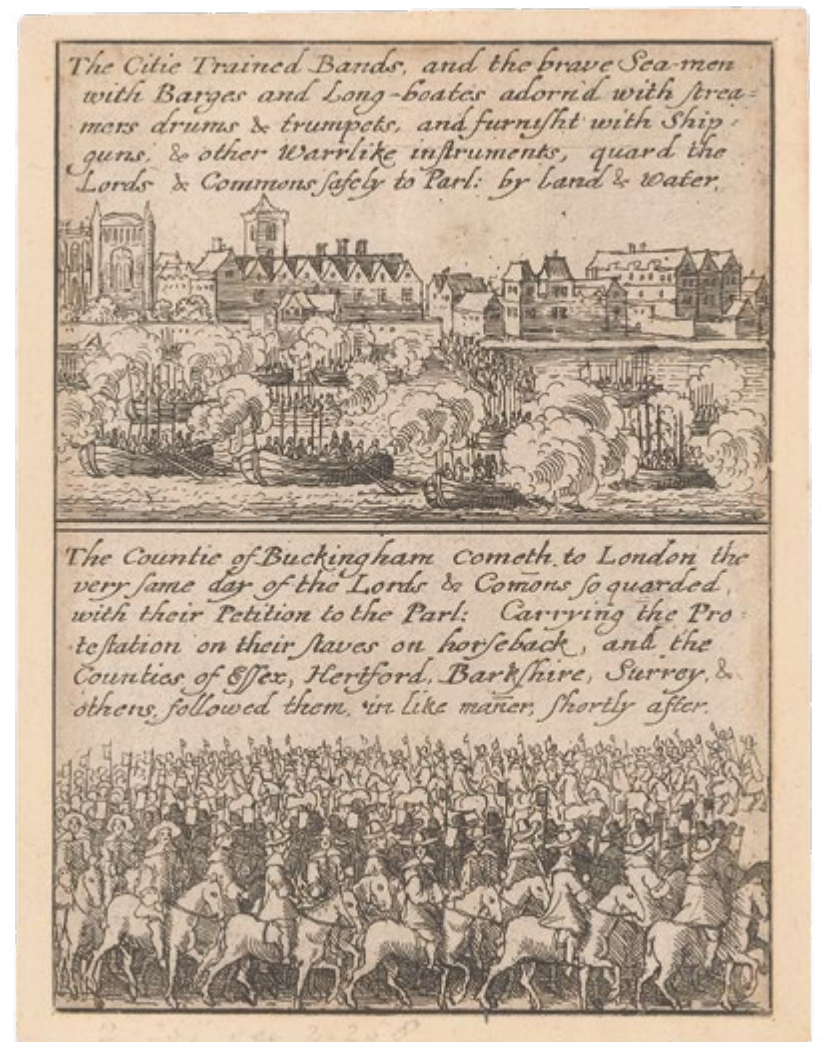 The Citie Trained Bands, and the brave Sea-men
with Barges and Long-boates adorn'd with ſtrea=
mers drums & trumpets, and furniſht with Ship=
guns, & other Warrlike inſtruments, quard the
Lords & Commons ſafely to Parl: by land & water.
The Countie of Buckingham cometh to London the
very ſame day of the Lords & Comons ſo quarded,
with their Petition to the Parl: Carrying the Pro=
teſtation on their ſtaves on horſeback, and the
Counties of Eſſex, Hertford, Barkſhire, Surrey, &
others, followed them, in like man̄er, ſhortly after.